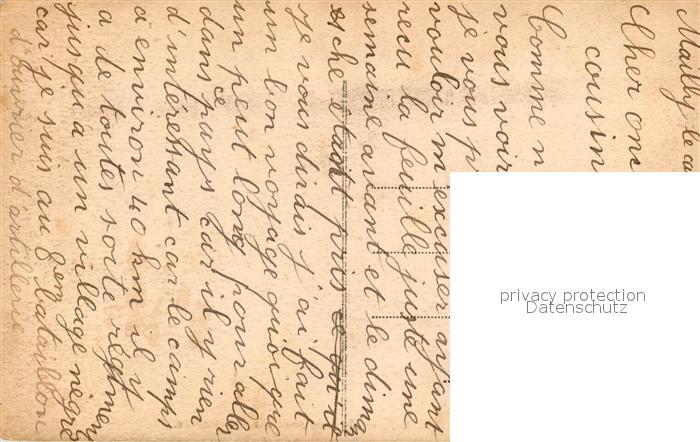 Mailly le ca
Cher onc
cousin
Comme n
vous voir
je vous p
vouloir m'excuser ayant
recu la feuille juste une
semaine avant et le diman
che étant pris
Je vous dirais j'ai fait
un bon voyage quoique
un peut long pour aller
dans ce pays car il y rien
d'intéressant car le camps
à environ 40 km il y
a de toutes sorte régimen
jusqu'à un village nègre
car je suis au 8em bataillon
d'ouvrier d'artillerie
privacy protection
Datenschutz